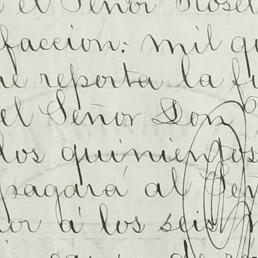 el Señor Rosel
faccion: mil qu
ue reporta la fi
el Señor Don
dos quinientos
pagará al Señ
or á los seis